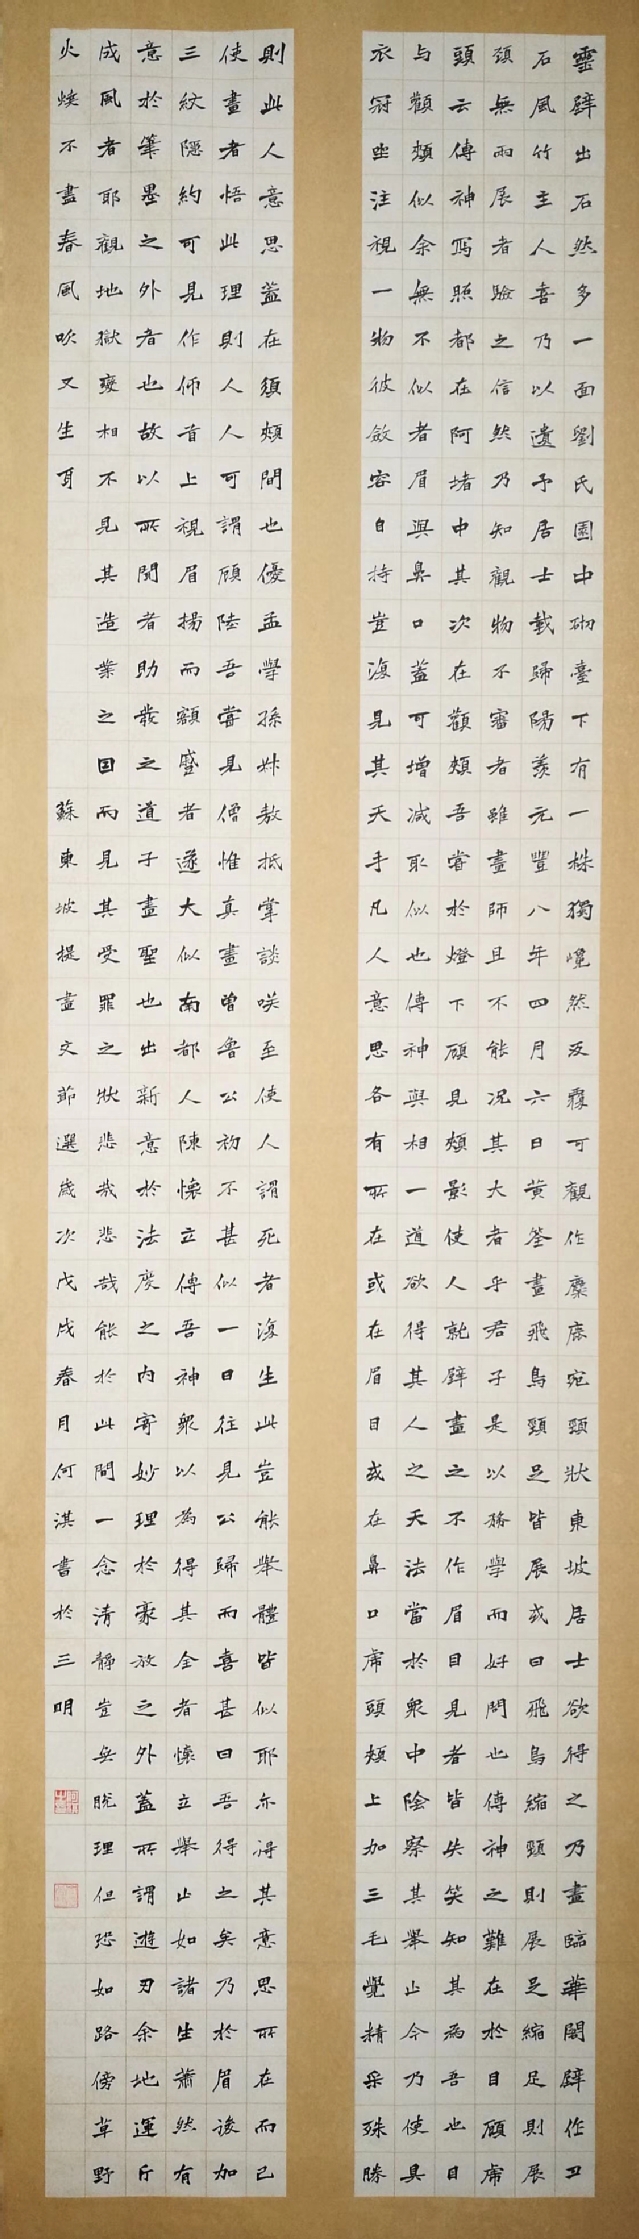 靈壁出石然多一面劉氏園中砌臺下有一株獨巉然反覆可觀作麋鹿宛頸狀東坡居士欲得之乃畫臨華閣壁作丑
石風竹主人喜乃以遺予居士載歸陽羨元豐八年四月六日黃筌畫飛鳥頸足皆展或曰飛鳥縮頸則展足縮足則展
頸無兩展者驗之信然乃知觀物不審者雖畫師且不能況其大者乎君子是以務學而好問也傳神之難在於目顧虎
頭云傳神寫照都在阿堵中其次在顴頰吾嘗於燈下顧見頰影使人就壁畫之不作眉目見者皆失笑知其為吾也目
与顴頰似余無不似者眉與鼻口蓋可增減取似也傳神與相一道欲得其人之天法當於眾中陰察其舉止今乃使具
衣冠坐注視一物彼斂容自持豈復見其天乎凡人意思各有所在或在眉目或在鼻口虎頭頰上加三毛覺精采殊勝
則此人意思蓋在須頰間也優孟學孫叔敖抵掌談咲至使人謂死者復生此豈能舉體皆似耶亦得其意思所在而已
使畫者悟此理則人人可謂顧陸吾嘗見僧惟真畫曾魯公初不甚似一日往見公歸而喜甚曰吾得之矣乃於眉後加
三紋隱約可見作仰首上視眉揚而額蹙者遂大似南都人陳懷立傳吾神眾以為得其全者懷立舉止如諸生蕭然有
意於筆墨之外者也故以所聞者助發之道子畫聖也出新意於法度之內寄妙理於豪放之外蓋所謂遊刃余地運斤
成風者耶觀地獄變相不見其造業之因而見其受罪之狀悲哉悲哉能於此間一念清靜豈無脫理但恐如路傍草野
火燒不盡春風吹又生耳 蘇東坡提畫文節選歲次戊戌春月何淇書於三明